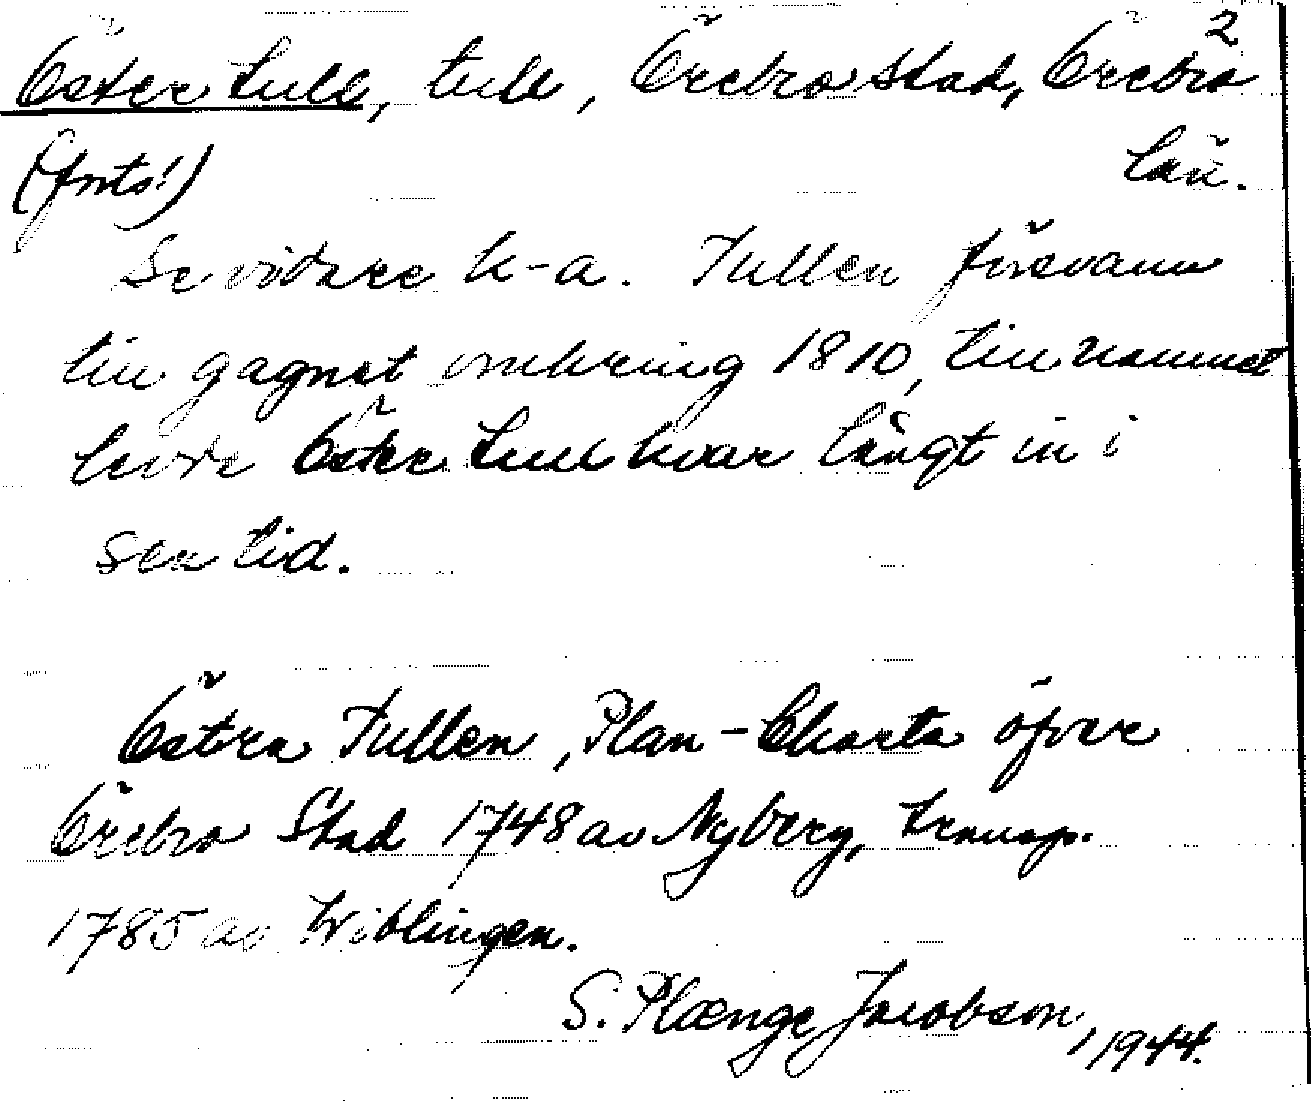 2
Öster tull, tull, Örebro stad, Örebro
(forts!) län.
Se vidare k-a. Tullen försvann
till gagnet omkring 1810, till namnet
levde Öster tull kvar långt in i
sen tid.
Östra Tullen, Plan-Charta öfver
Örebro Stad 1748 av Nyberg, transp.
1785 av Wiblingen.
S. Plænge Jacobson, 1944.